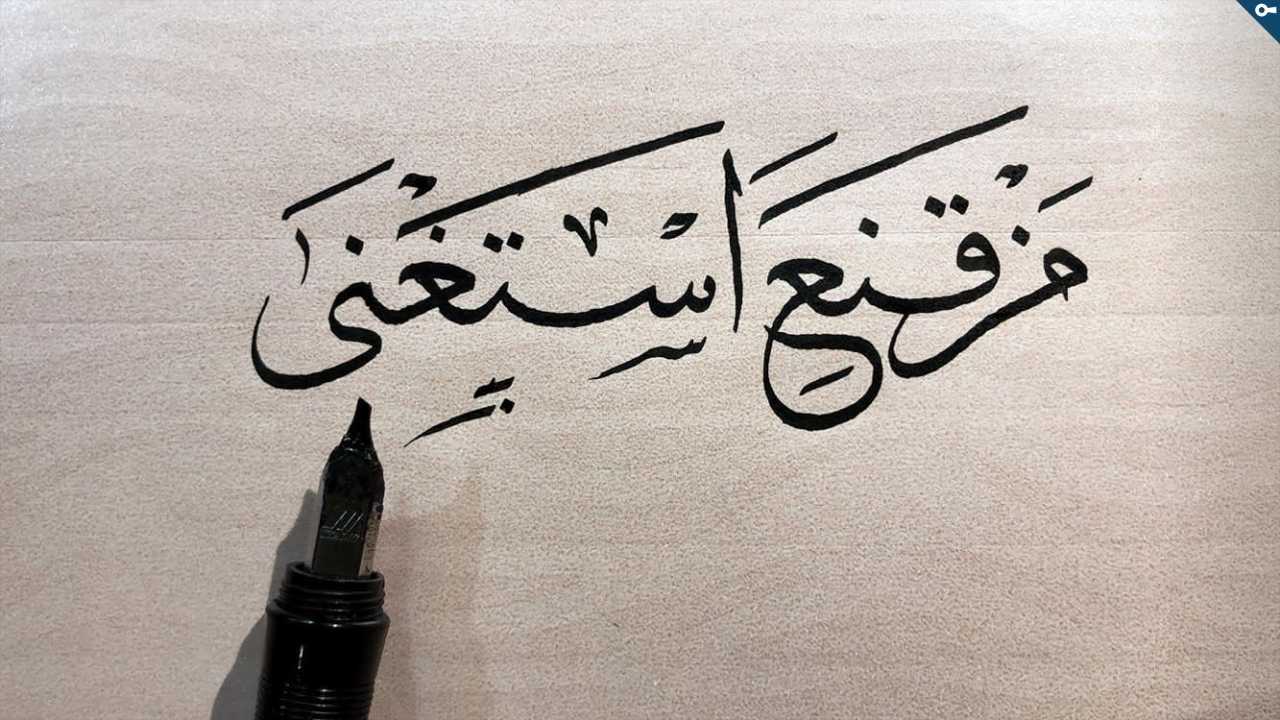 مَنْ قَنَعِ اسْتَغْنَىٰ